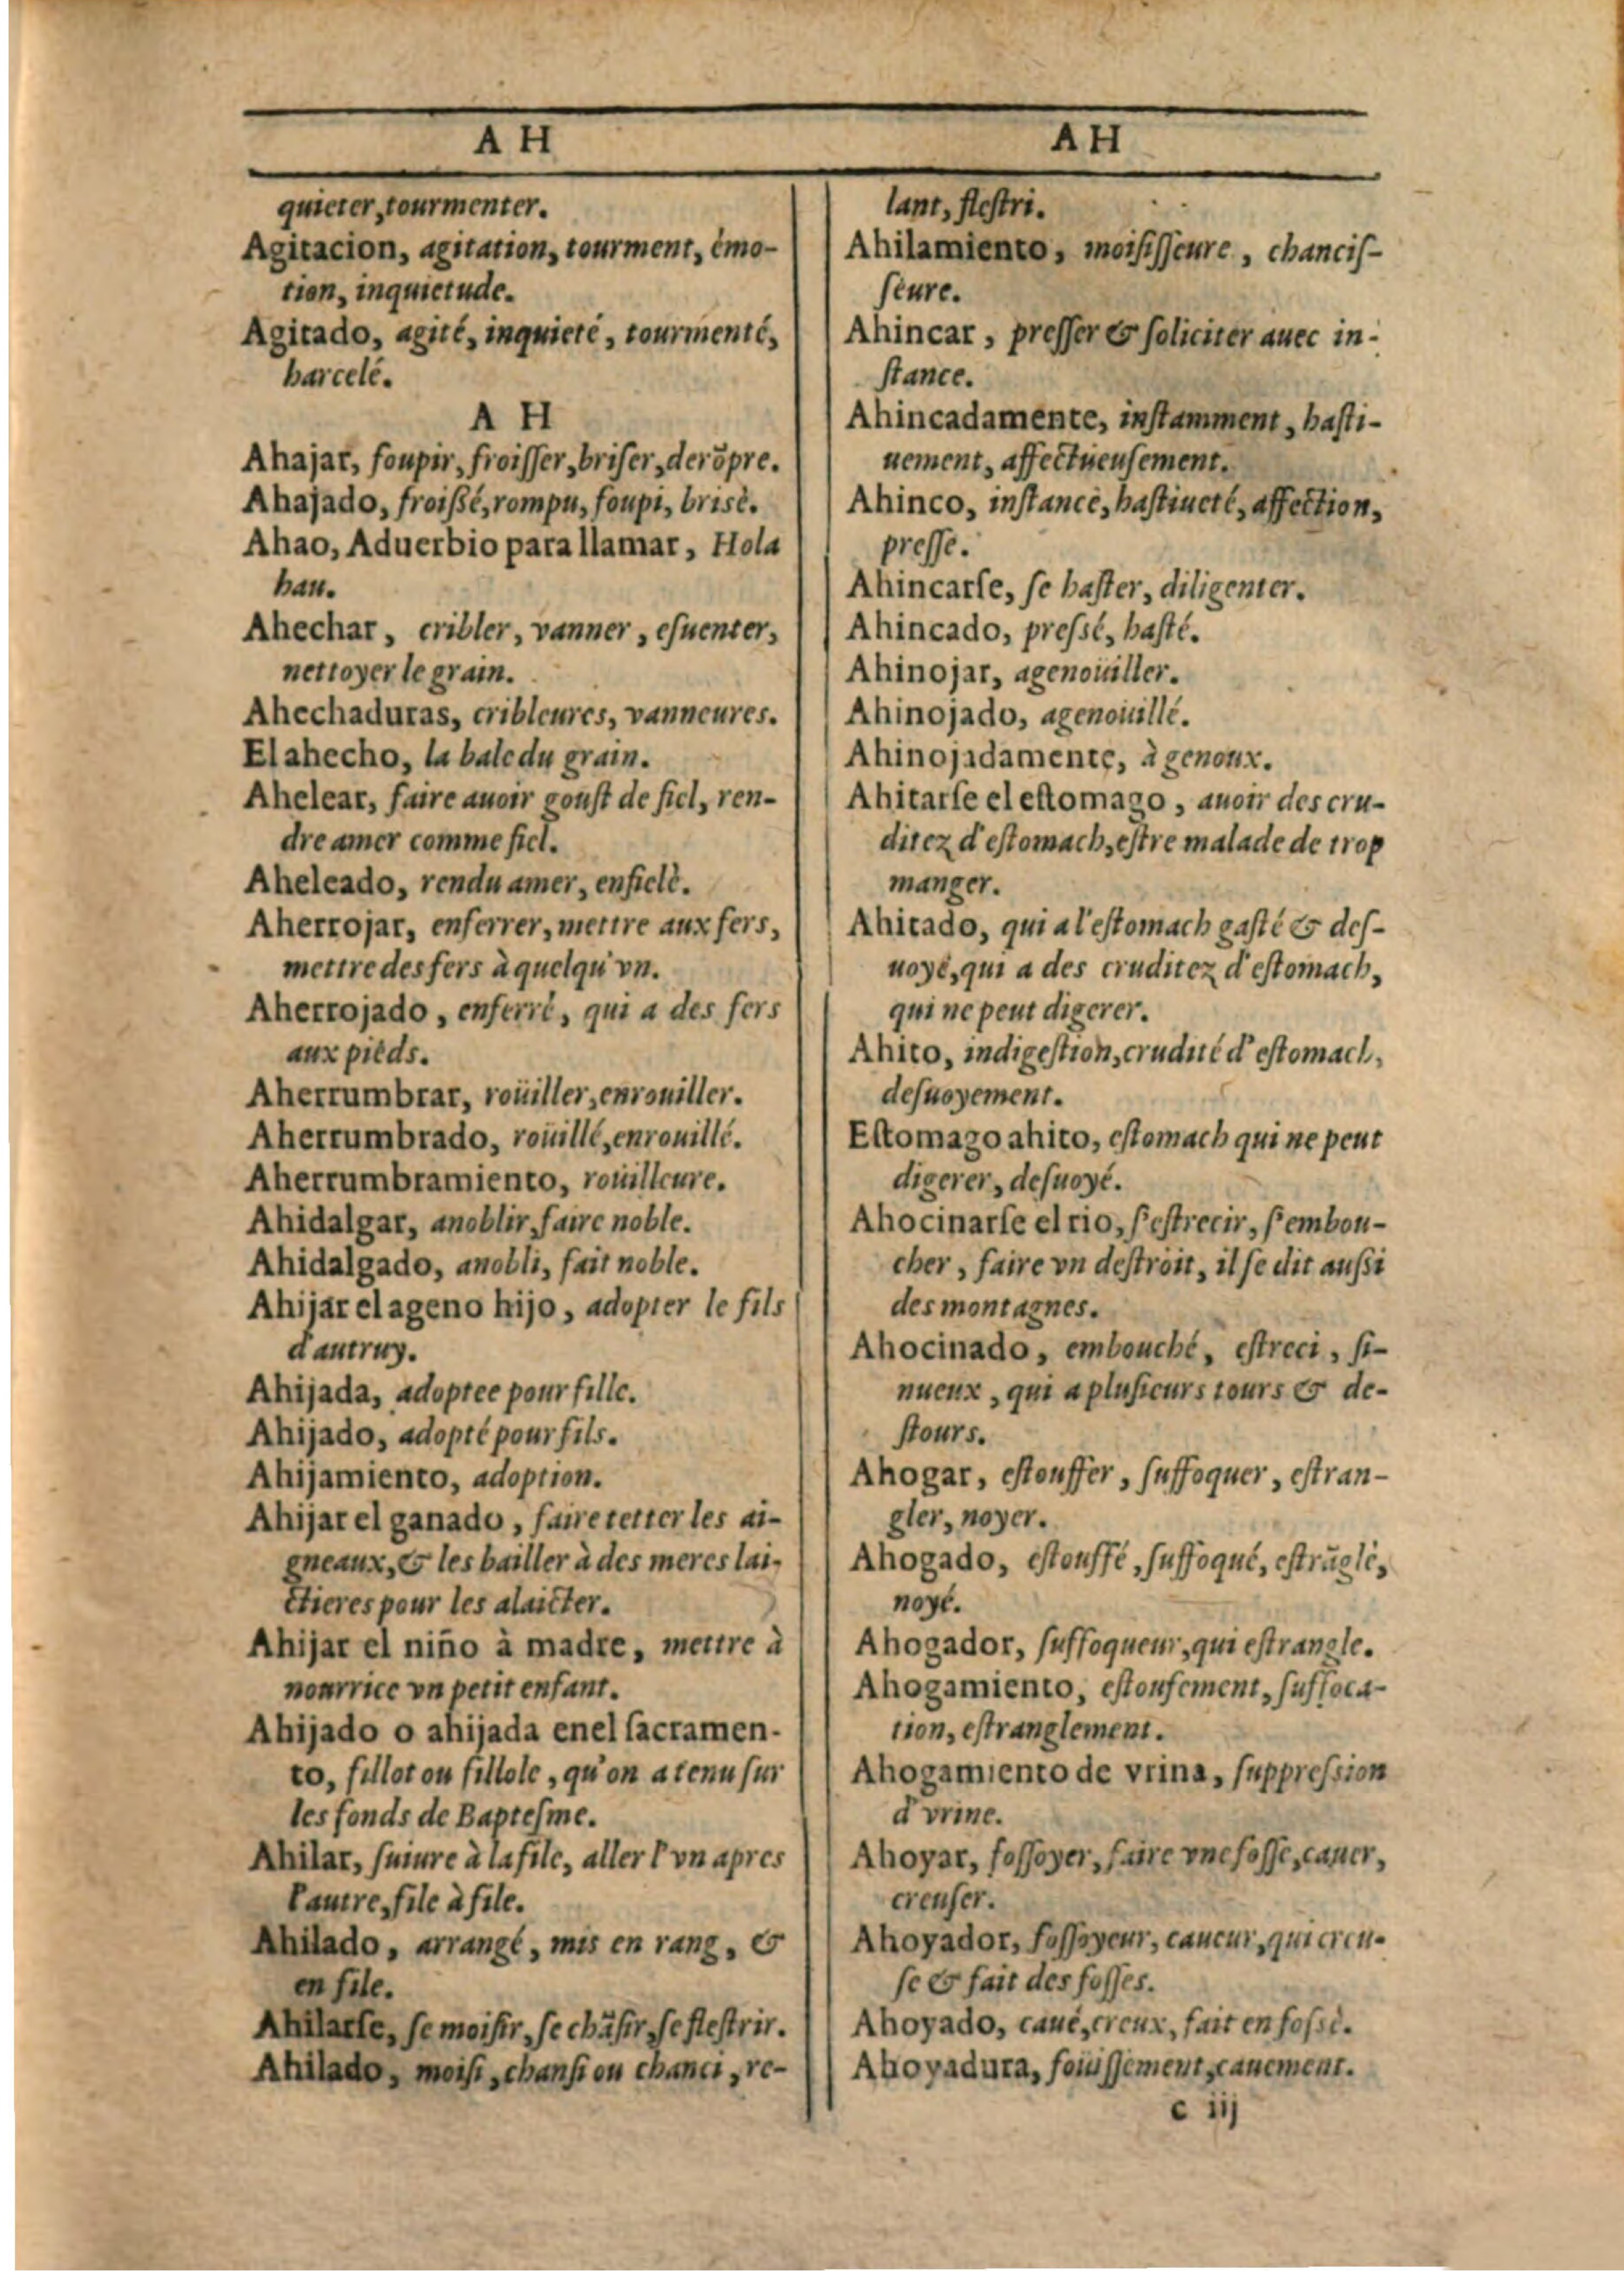 A H
quieter, tourmenter.
Agitacion, agitation, tourment, émo-
tion, inquietude.
Agitado, agité, inquieté, tourmenté,
harcelé.
A H
Ahajar, foupir, froiſſer, briſer, derõpre.
Ahajado, froißé, rompu, foupi, brisè.
Ahao, Aduerbio para llamar, Hola
hau.
Ahechar, cribler, vanner, eſuenter,
nettoyer le grain.
Ahechaduras, cribleures, vanneures.
El ahecho, la bale du grain.
Ahelear, faire auoir gouſt de fiel, ren-
dre amer comme fiel.
Aheleado, rendu amer, enfielè.
Aherrojar, enferrer, mettre aux fers,
mettre des fers à quelqu'vn.
Aherrojado, enferré, qui a des fers
aux pieds.
Aherrumbrar, roüiller, enrouiller.
Aherrumbrado, roüillé, enrouillé.
Aherrumbramiento, roüilleure.
Ahidalgar, anoblir, faire noble.
Ahidalgado, anobli, fait noble.
Ahijar el ageno hijo, adopter le fils
d'autruy.
Ahijada, adoptee pour fille.
Ahijado, adopté pour fils.
Ahijamiento, adoption.
Ahijar el ganado, faire tetter les ai-
gneaux, & les bailler à des meres lai-
ctieres pour les alaicter.
Ahijar el niño à madre, mettre à
nourrice vn petit enfant.
Ahijado o ahijada enel ſacramen-
to, fillot ou fillole, qu'on a tenu ſur
les fonds de Bapteſme.
Ahilar, ſuiure à la file, aller l'vn apres
l'autre, file à file.
Ahilado, arrangé, mis en rang, &
en file.
Ahilarſe, ſe moiſir, ſe chãſir, ſe fleſtrir.
Ahilado, moiſi, chanſi ou chanci, re-
A H
lant, fleſtri.
Ahilamiento, moiſiſſeure, chanciſ-
ſeure.
Ahincar, preſſer & ſoliciter auec in-
ſtance.
Ahincadamente, inſtamment, haſti-
uement, affectueuſement.
Ahinco, inſtance, haſtiueté, affection,
preſſe.
Ahincarſe, ſe haſter, diligenter.
Ahincado, preſsé, haſté.
Ahinojar, agenoüiller.
Ahinojado, agenoüillé.
Ahinojadamente, à genoux.
Ahitarſe el eſtomago, auoir des cru-
ditez d'eſtomach, eſtre malade de trop
manger.
Ahitado, qui a l'eſtomach gaſté & deſ-
uoyé, qui a des cruditez d'eſtomach,
qui ne peut digerer.
Ahito, indigeſtion, crudité d'eſtomach,
deſuoyement.
Eſtomago ahito, eſtomach qui ne peut
digerer, deſuoyé.
Ahocinarſe el rio, ſ'eſtrecir, ſ'embou-
cher, faire vn deſtroit, il ſe dit auſsi
des montagnes.
Ahocinado, embouché, eſtreci, ſi-
nueux, qui a pluſieurs tours & de-
ſtours.
Ahogar, eſtouffer, ſuffoquer, eſtran-
gler, noyer.
Ahogado, eſtouffé, ſuffoqué, eſtrãglè,
noyé.
Ahogador, ſuffoqueur, qui eſtrangle.
Ahogamiento, eſtoufement, ſuffoca-
tion, eſtranglement.
Ahogamiento de vrina, ſuppreſsion
d'vrine.
Ahoyar, foſſoyer, faire vne foſſe, cauer,
creuſer.
Ahoyador, foſſoyeur, caueur, qui creu-
ſe & fait des foſſes.
Ahoyado, caué, creux, fait en foſsè.
Ahoyadura, foüiſſement, cauement.
c iij